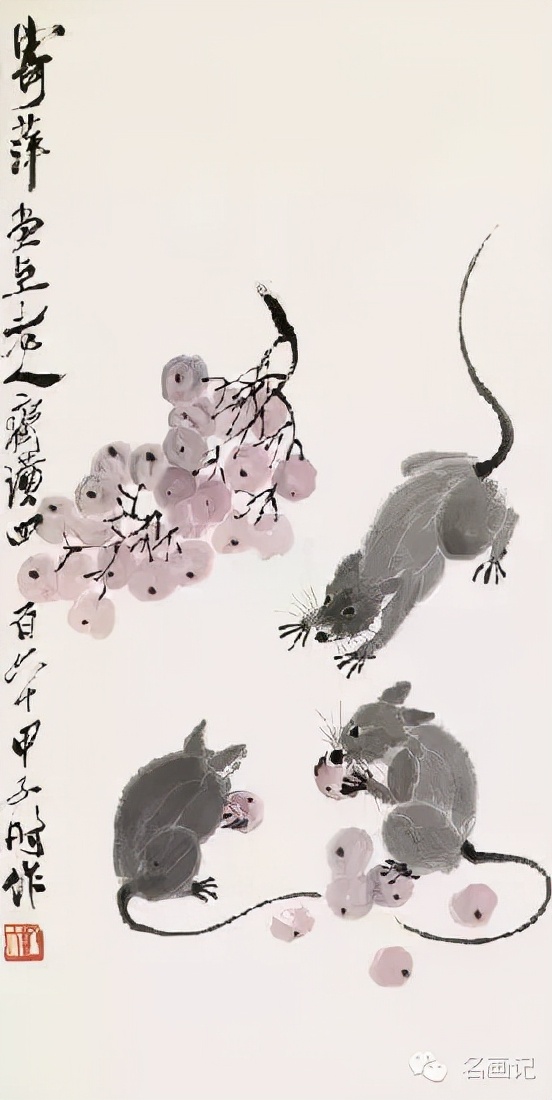 寄萍堂上老人齊璜四百六十甲子時作
名画记